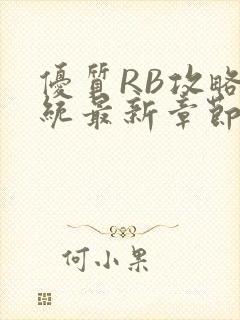 優質RB攻略
統最新章節
何小果